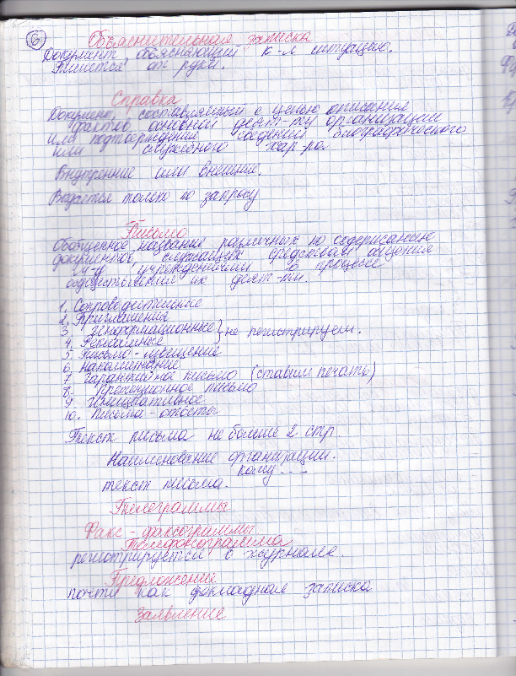 6
Объяснительная записка
Документ, объясняющий к-л ситуацию.
Пишется от руки.
Справка
Документ, составляемый с целью описания
фактов основной деят-ти организации
или подтверждения сведений биографического
или служебного хар-ра.
Внутренние или внешние.
Выдается только по запросу
Письмо
Обобщенное название различных по содержанию
документов, служащих средством общения
между учреждениями в процессе
осуществления их деят-ти.
1. Сопроводительные
2. Приглашения
3. Информационные } не регистрируем.
4. Рекламные
5. Письмо-извещение
6. Напоминание
7. Гарантийное письмо (ставим печать)
8. письмо
9. Инициативное
10. Письма-ответы
Текст письма не больше 2 стр
Наименование организации.
кому...
текст письма.
Телеграммы
Факс - факсограммы
Телефонограмма
регистрируется в журнале.
Предложение
почти как докладная записка
Заявление